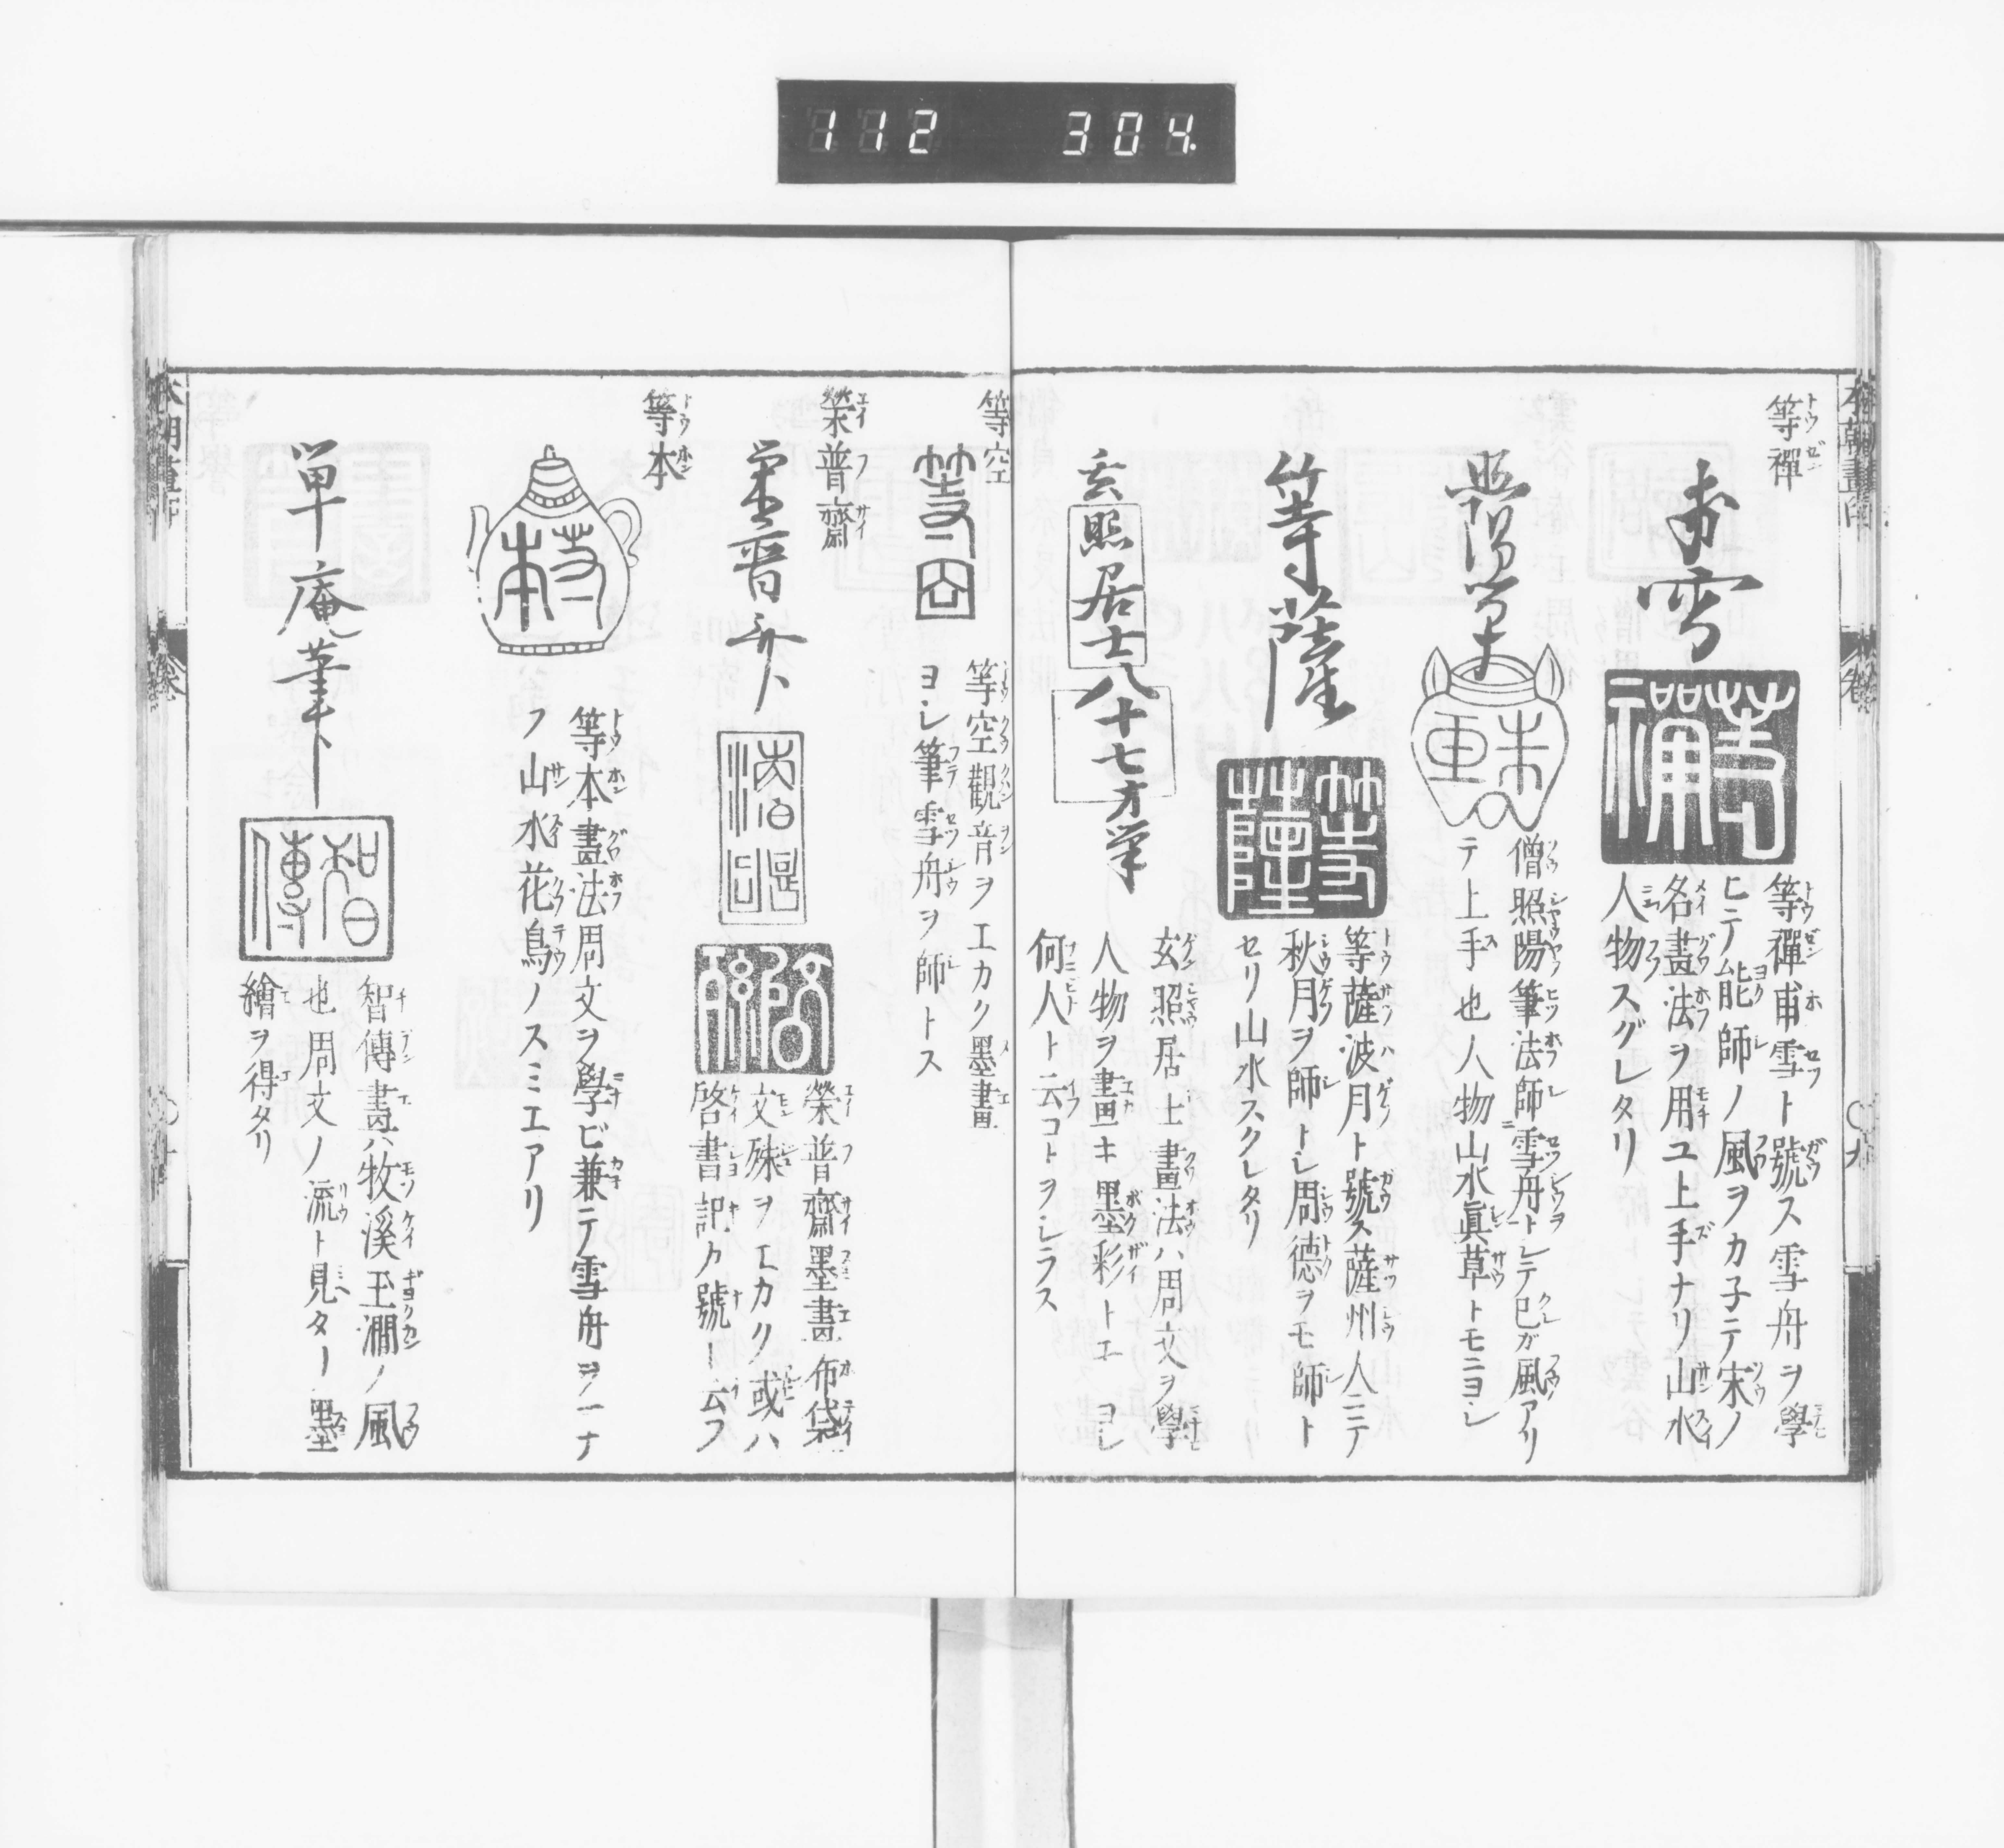 112 304.
等禪
甫雪
等禪
等禪甫雪ト號ス雪舟ヲ學
ヒテ能師ノ風ヲカ子テ宋ノ
名畫法ヲ用ユ上手ナリ山水
人物スグレタリ
照陽筆
僧照陽筆法師雪舟トレテ己ガ風アリ
テ上手也人物山水眞草トモニヨレ
等薩
等薩
等薩波月ト號ス薩州人ニテ
秋月ヲ師トレ周德ヲモ師ト
セリ山水スクレタリ
玄照居士八十七才筆
玄照居士畫法ハ周文ヲ學
人物ヲ畫キ墨彩トエヨレ
何人ト云コトヲシラス
等空
等空
等空觀音ヲエカク墨畫
ヨレ筆雪舟ヲ師トス
榮普齋
榮普齋墨畫布袋
文殊ヲエカク或ハ
啓書記カ號ト云フ
等本
等本
等本畫法周文ヲ學ビ兼テ雪舟ヲ一ナ
フ山水花鳥ノスミエアリ
単庵筆
智傳
智傳畫ハ牧溪玉澗ノ風
也周文ノ流ト見ター墨
繪ヲ得タリ